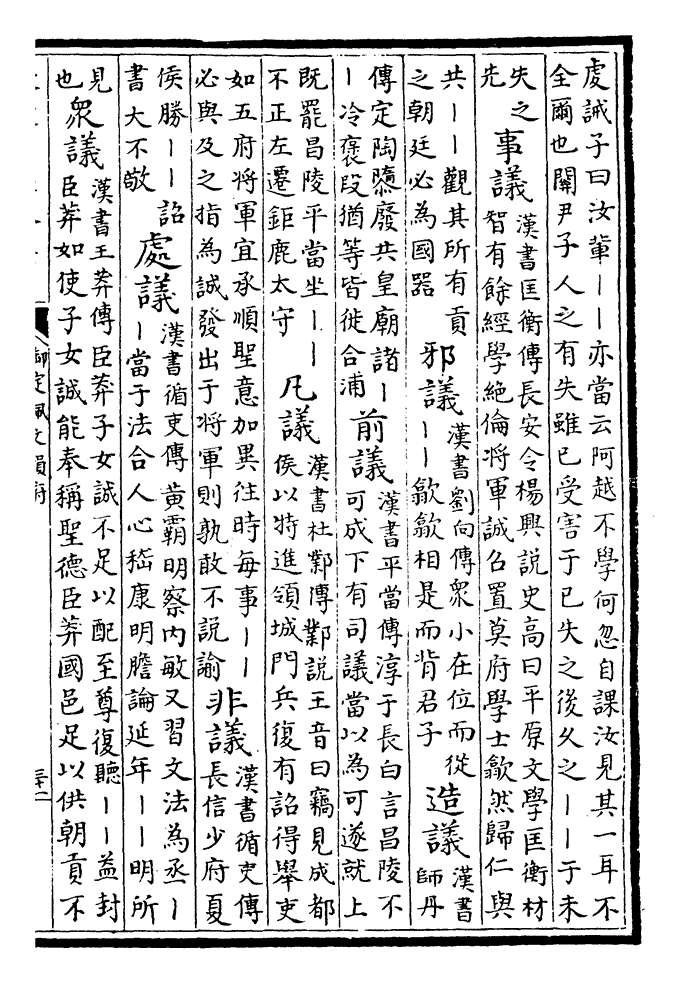 虔誡子曰汝輩——亦當云阿越不學何忽自課汝見其一耳不
全爾也關尹子人之有失雖已受害于已失之後久之——于未
失之
先
事議
漢書匡衡傳長安令楊興説史高曰平原文學匡衡材
智有餘經學絶倫將軍誠召置莫府學士歙然歸仁與
共——觀其所有貢
之朝廷必為國器
邪議
漢書劉向傳衆小在位而從
——歙歙相是而背君子
造議
漢書
師丹
傳定陶隳廢共皇廟諸—
—冷襃段猶等皆徙合浦
前議
漢書平當傳淳于長白言昌陵不
可成下有司議當以為可遂就上
既罷昌陵平當坐——
不正左遷鉅鹿太守
凡議
漢書杜鄴傳鄴説王音曰竊見成都
侯以特進領城門兵復有詔得舉吏
如五府將軍宜承順聖意加異往時每事——
必與及之指為誠發出于將軍則孰敢不説諭
非議
漢書循吏傳
長信少府夏
侯勝——詔
書大不敬
處議
漢書循吏傳黄霸明察内敏又習文法為丞—
—當于法合人心嵇康明膽論延年——明所
見
也
衆議
漢書王莽傳臣莽子女誠不足以配至尊復聽——益封
臣莽如使子女誠能奉稱聖德臣莽國邑足以供朝貢不
御定佩文韻府